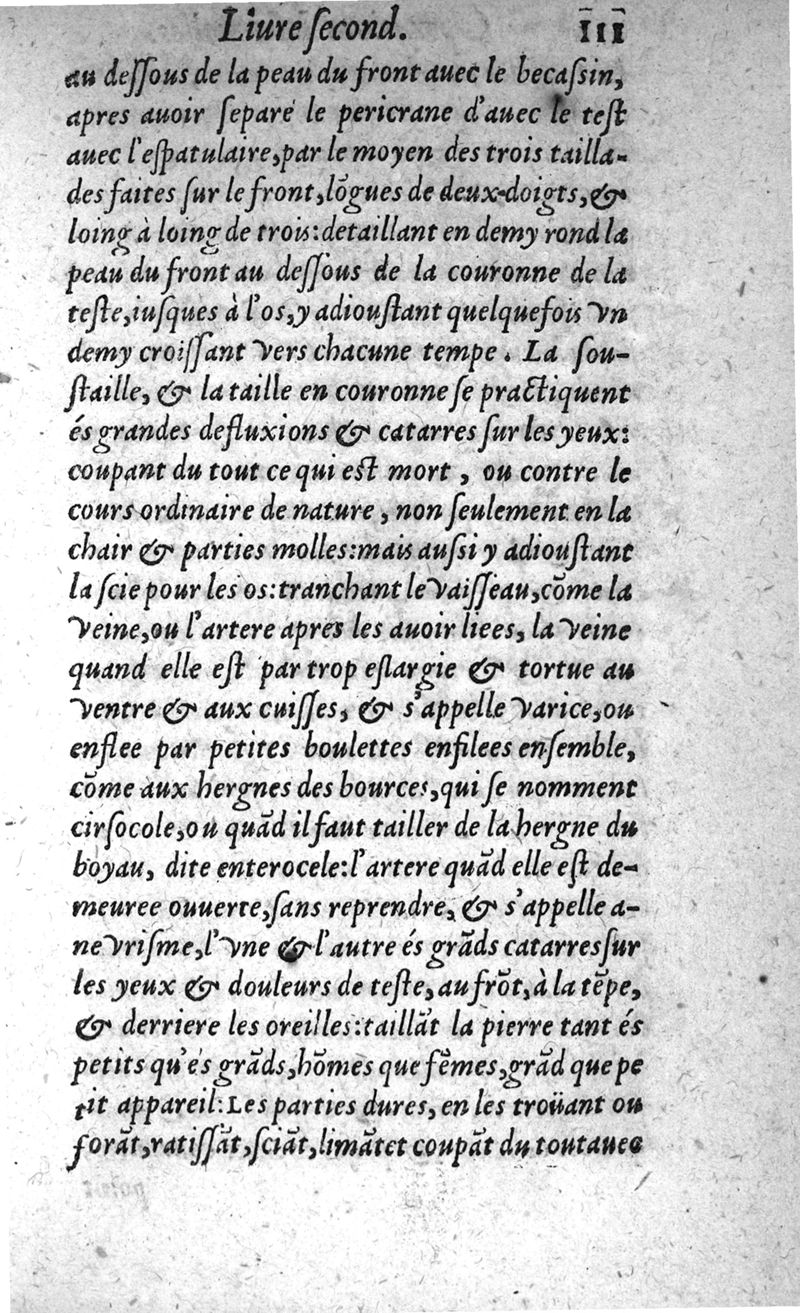 Liure ſecond. 111
au deſſous de la peau du front auec le becaſsin,
apres auoir ſeparé le pericrane d'auec le teſt
auec l'eſpatulaire,par le moyen des trois tailla-
des faites ſur le front,lõgues de deux-doigts,&
loing à loing de trois:detaillant en demy rond la
peau du front au deſſous de la couronne de la
teſte,iuſques à l'os,y adiouſtant quelquefois vn
demy croiſſant vers chacune tempe. La ſou-
ſtaille, & la taille en couronne ſe practiquent
és grandes defluxions & catarres ſur les yeux:
coupant du tout ce qui eſt mort, ou contre le
cours ordinaire de nature, non ſeulement en la
chair & parties molles:mais auſsi y adiouſtant
la ſcie pour les os:tranchant le vaiſſeau,cõme la
veine,ou l'artere apres les auoir liees, la veine
quand elle eſt par trop eſlargie & tortue au
ventre & aux cuiſſes, & s'appelle varice,ou
enflee par petites boulettes enfilees enſemble,
cõme aux hergnes des bources,qui ſe nomment
cirſocole,ou quãd il faut tailler de la hergne du
boyau, dite enterocele:l'artere quãd elle eſt de-
meuree ouuerte,ſans reprendre, & s'appelle a-
nevriſme,l'vne & l'autre és grãds catarres ſur
les yeux & douleurs de teſte, au frõt,à la tẽpe,
& derriere les oreilles:taillãt la pierre tant és
petits qu'és grãds,hõmes que fẽmes,grãd que pe
tit appareil:Les parties dures, en les troüant ou
forãt,ratiſſãt,ſciãt,limãt et coupãt du tout auec